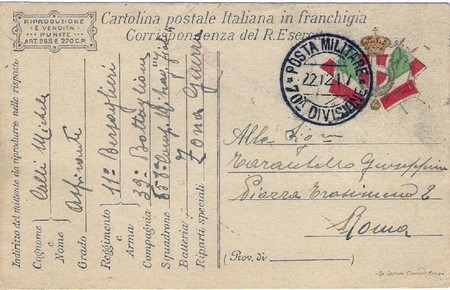 RIPRODUZIONE
E VENDITA
PUNITE
ART. 268 E 270 C.P.
Cartolina postale Italiana in franchigia
Corrispondenza del R. Eserc
POSTA MILITARE
22.12.17
70ª DIVISIONE
Indirizzo del mittente da riprodurre nelle risposte
Cognome e Nome Calli Michele
Grado Aspirante
Reggimento e Arma 11º Bersaglieri
Compagnia 39º Battaglione
Squadrone
Batteria
Riparti speciali Zona Guerra
Alla Sigra
Tarantello Giuseppina
Piazza Trasimeno 2
Roma
(Prov. di )